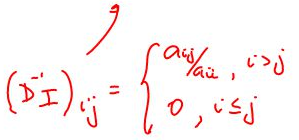 (D⁻¹I)ᵢⱼ = { aᵢⱼ/aᵢᵢ , i>j
0 , i≤j